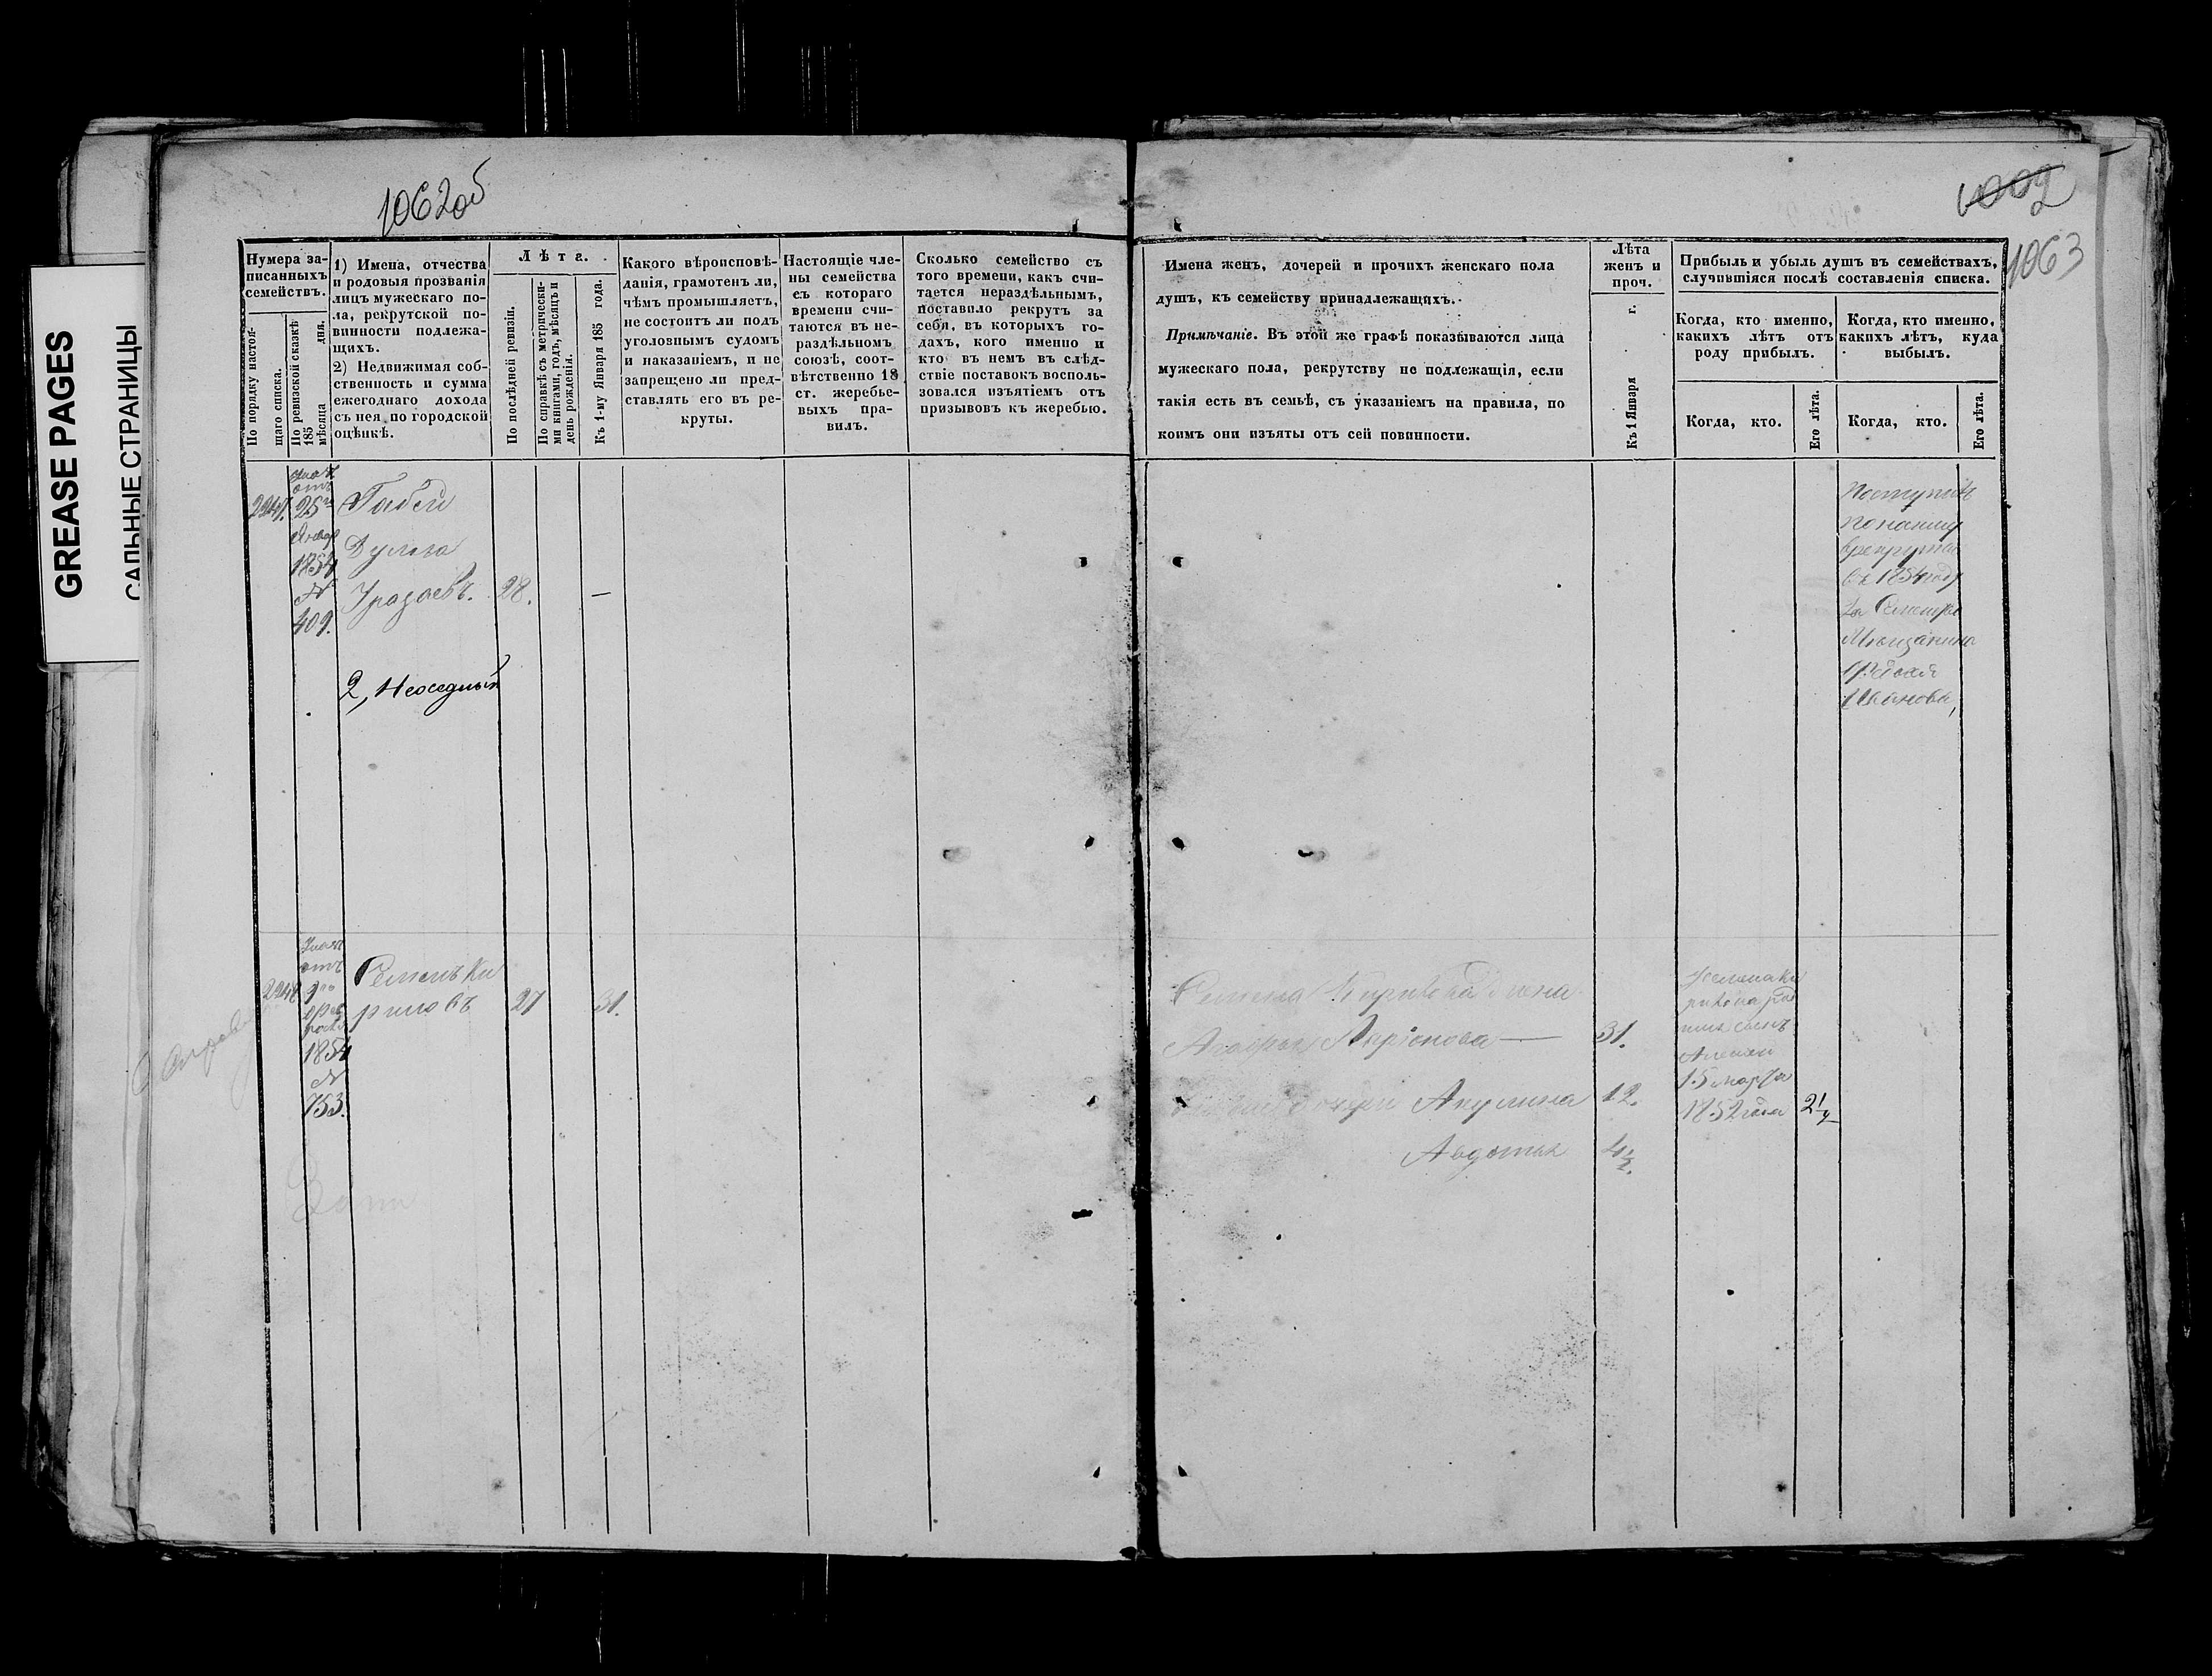 GREASE PAGES
САЛЬНЫЕ СТРАНИЦЫ
1062об
Нумера за-
писанныхъ
семействъ.
По порядку настоя-
щаго списка.
По ревизской сказкѣ
185 дня.
мѣсяца
1) Имена, отчества
и родовыя прозванія
лицъ мужескаго по-
ла, рекрутской по-
винности подлежа-
щихъ.
2) Недвижимая соб-
ственность и сумма
ежегоднаго дохода
съ нея по городской
оцѣнкѣ.
Лѣта.
По послѣдней ревизіи.
По справкѣ съ метрически-
ми книгами, годъ, мѣсяцъ и
день рожденія.
Къ 1-му Января 185 года.
Какого вѣроисповѣ-
данія, грамотенъ ли,
чѣмъ промышляетъ,
не состоитъ ли подъ
уголовнымъ судомъ
и наказаніемъ, и не
запрещено ли пред-
ставлять его въ ре-
круты.
Настоящіе чле-
ны семейства
съ котораго
времени счи-
таются въ не-
раздѣльномъ
союзѣ, соот-
вѣтственно 18
ст. жеребье-
выхъ пра-
вилъ.
Сколько семейство съ
того времени, какъ счи-
тается нераздѣльнымъ,
поставило рекрутъ за
себя, въ которыхъ го-
дахъ, кого именно и
кто въ немъ въ слѣд-
ствіе поставокъ восполь-
зовался изъятіемъ отъ
призывовъ къ жеребью.
2247.
отъ
25го
Январ
1854
№
409.
Габей
Дулла
Уразаевъ. 28. —
2, Неоседлый
2248
отъ
9го
1854
№
753.
Семенъ Ки
риловъ 27 31.
1002
1063
Имена женъ, дочерей и прочихъ женскаго пола
душъ, къ семейству принадлежащихъ.
Примѣчаніе. Въ этой же графѣ показываются лица
мужескаго пола, рекрутству не подлежащія, если
такія есть въ семьѣ, съ указаніемъ на правила, по
коимъ они изъяты отъ сей повинности.
Лѣта
женъ и
проч.
Къ 1 Января г.
Прибыль и убыль душъ въ семействахъ,
случившіяся послѣ составленія списка.
Когда, кто именно,
какихъ лѣтъ отъ
роду прибылъ.
Когда, кто именно,
какихъ лѣтъ, куда
выбылъ.
Когда, кто.
Его лѣта.
Когда, кто.
Его лѣта.
Поступилъ
по найму
в рекруты
въ 1854 году
за
Мѣщанина
Иванова,
Семена Кирилова жена
Ларіонова — 31.
дочери Акулина 12.
Авдотья 4½.
сынъ
Алексей
15 марта
1852 года 2½